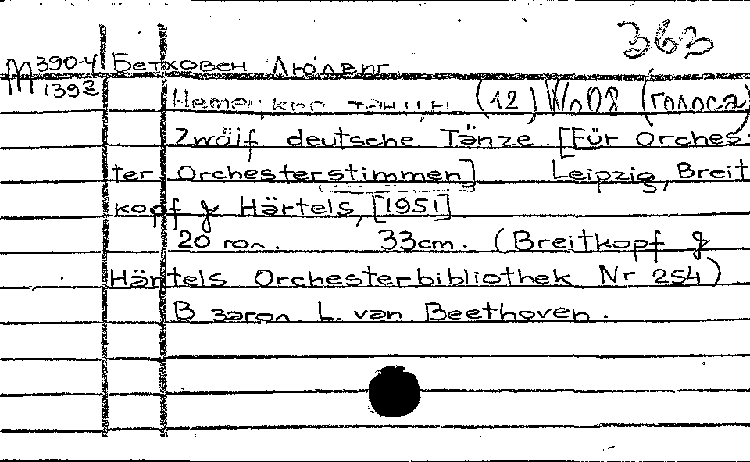 363
М 390-4 Бетховен Людвиг
1392
Немецкие танцы (12) WoO8 (голоса)
Zwölf deutsche Tänze [Für Orches-
ter Orchesterstimmen] Leipzig, Breit
kopf & Härtels, [1951]
20 гол. 33cm. (Breitkopf &
Härtels Orchesterbibliothek Nr 254)
В загол. L. van Beethoven.